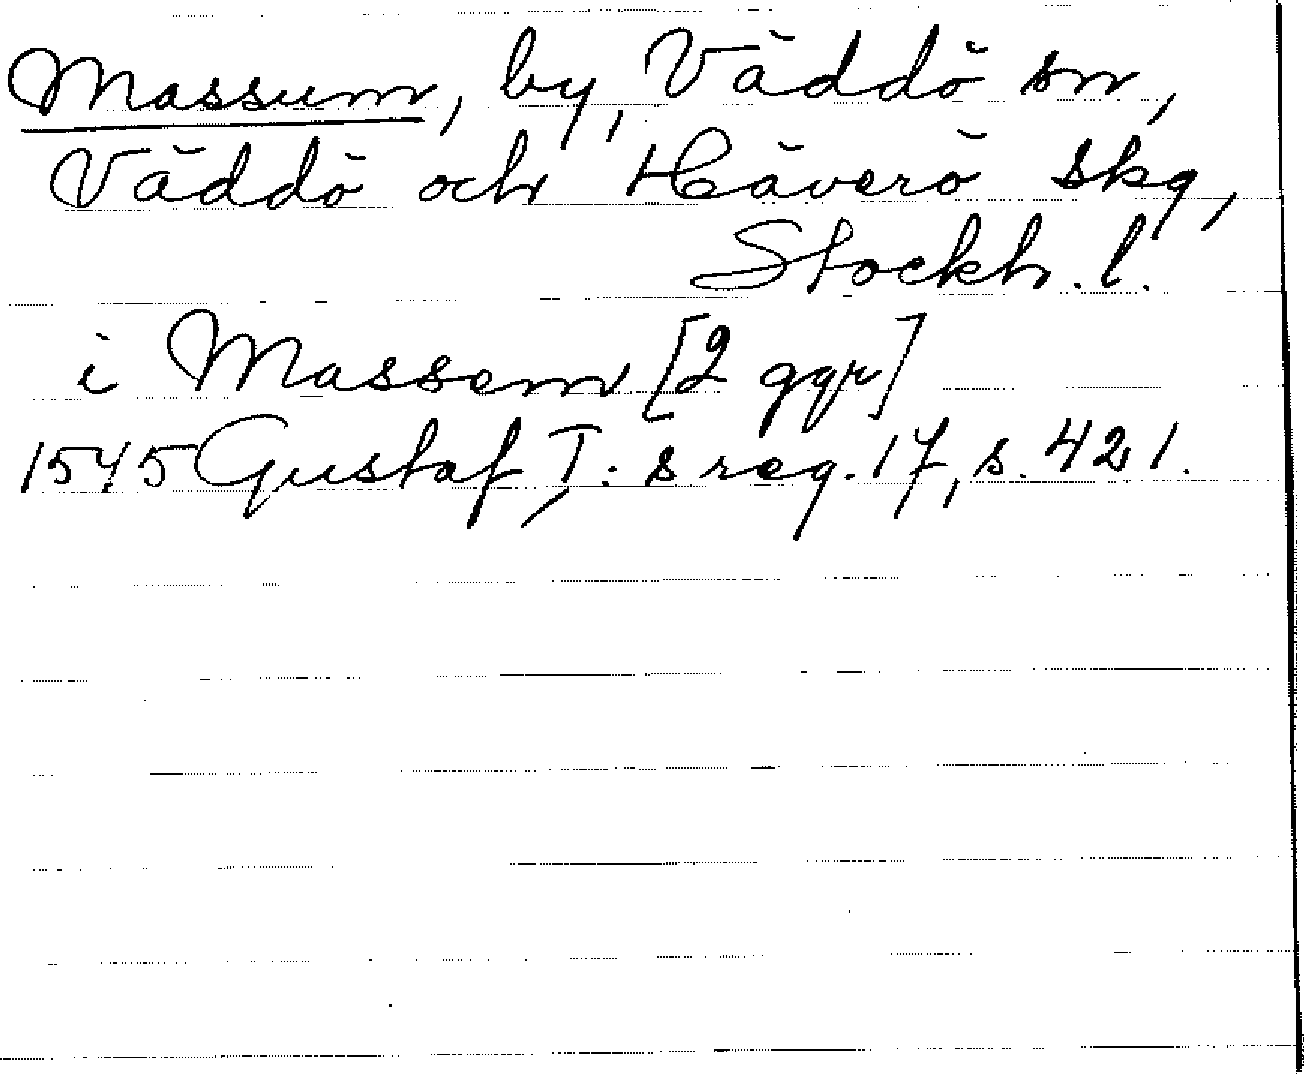 Massum, by, Väddö sn,
Väddö och Häverö skg,
Stockh. l.
i Massem [2 ggr]
1545 Gustaf I:s reg. 17, s. 421.